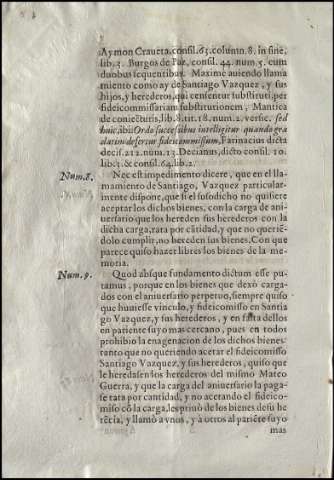 Aymon Craueta, consil. 63. column. 8. in fine,
lib. 3. Burgos de Paz, consil. 44. num. 5. cum
duobus sequentibus. Maxime auiendo llama
miento como ay de Santiago Vazquez, y sus
hijos, y herederos, qui censentur substituti, per
fideicommissariam substitutionem, Mantica
de coniecturis, lib. 8. tit. 18. num. 2. versic. sed
huic, ibi: Ordo successibus intelligitur quando gra
datim defertur fideicommissum, Farinacius dicta
decis. 212. num. 13. Decianus, dicto consil. 10.
lib. 3. & consil. 64. lib. 2.
Num. 8. Nec est impedimento dicere, que en el lla-
mamiento de Santiago, Vazquez particularm
mente dispone, que si el susodicho no quisiere
aceptar los dichos bienes, con la carga de ani-
uersario que los hereden sus herederos con la
dicha carga, rata por cãtidad, y que no querié-
dolo cumplir, no hereden sus bienes. Con que
parece quiso hazer libres los bienes de la me-
moria.
Num. 9. Quod absque fundamento dictum esse pu-
tamus, porque en los bienes que dexò carga-
dos con el aniuersario perpetuo, siempre quiso
que huuiesse vinculo, y fideicomisso en Santia
go Vazquez, y sus herederos, y en falta dellos
en pariente suyo mas cercano, pues en todos
prohibio la enagenacion de los dichos bienes:
tanto que no queriendo acetar el fideicomisso
Santiago Vazquez, y sus herederos, quiso que
le heredassen los herederos del mismo Mateo
Guerra, y que la carga del aniuersario la paga-
se rata por cantidad, y no acetando el fideico-
misso cõ la carga, les priuò de los bienes de su he
rẽcia, y llamò a vnos, y a otros al pariẽte suyo
mas